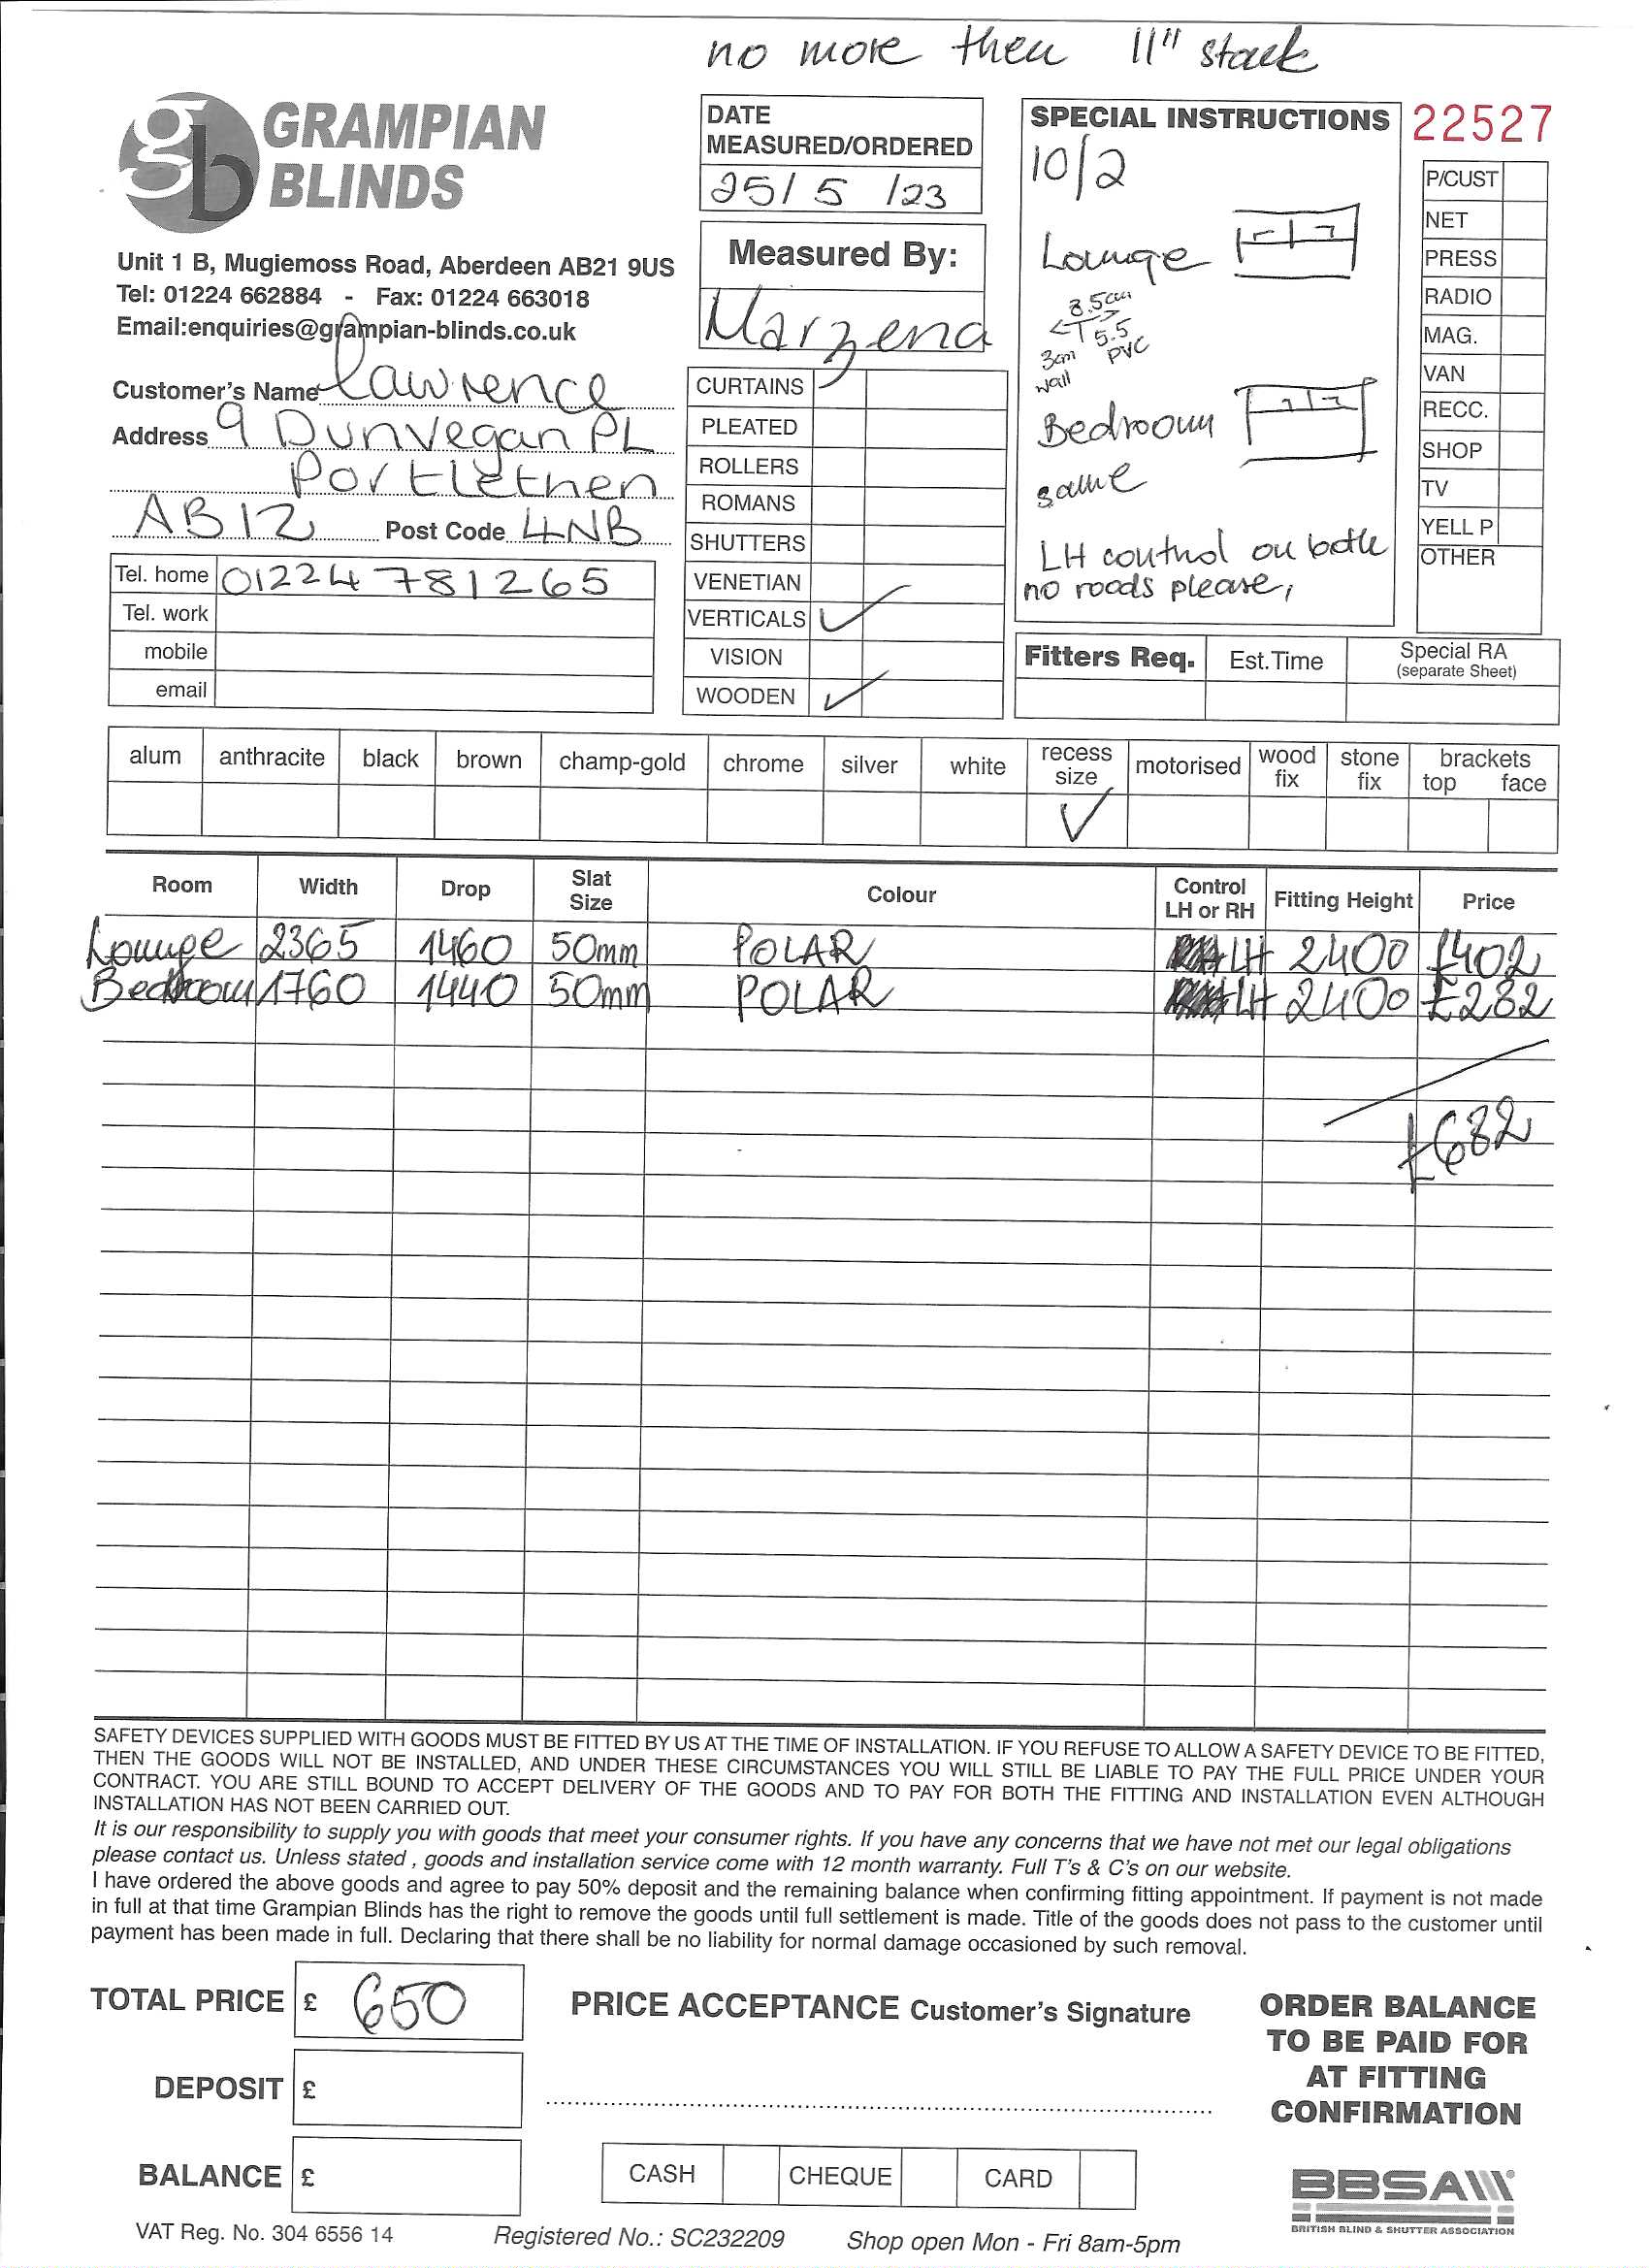 no more then 11" stack
GRAMPIAN
BLINDS
Unit 1 B, Mugiemoss Road, Aberdeen AB21 9US
Tel: 01224 662884 - Fax: 01224 663018
Email:enquiries@grampian-blinds.co.uk
Customer's Name Lawrence
Address 9 Dunvegan PL
Portlethen
AB12 Post Code 4NB
Tel. home 01224 781265
Tel. work
mobile
email
DATE
MEASURED/ORDERED
25/5/23
Measured By:
Marzena
CURTAINS
PLEATED
ROLLERS
ROMANS
SHUTTERS
VENETIAN
VERTICALS ✓
VISION
WOODEN ✓
SPECIAL INSTRUCTIONS
10/2
Lounge
8.5cm
5.5
3cm PVC
wall
Bedroom
same
LH control on both
no roods please,
22527
P/CUST
NET
PRESS
RADIO
MAG.
VAN
RECC.
SHOP
TV
YELL P
OTHER
Fitters Req. Est.Time Special RA
(separate Sheet)
alum anthracite black brown champ-gold chrome silver white recess size motorised wood fix stone fix brackets top face
✓
Room Width Drop Slat Size Colour Control LH or RH Fitting Height Price
Lounge 2365 1460 50mm POLAR LH 2400 £402
Bedroom 1760 1440 50mm POLAR LH 2400 £282
£682
SAFETY DEVICES SUPPLIED WITH GOODS MUST BE FITTED BY US AT THE TIME OF INSTALLATION. IF YOU REFUSE TO ALLOW A SAFETY DEVICE TO BE FITTED,
THEN THE GOODS WILL NOT BE INSTALLED, AND UNDER THESE CIRCUMSTANCES YOU WILL STILL BE LIABLE TO PAY THE FULL PRICE UNDER YOUR
CONTRACT. YOU ARE STILL BOUND TO ACCEPT DELIVERY OF THE GOODS AND TO PAY FOR BOTH THE FITTING AND INSTALLATION EVEN ALTHOUGH
INSTALLATION HAS NOT BEEN CARRIED OUT.
It is our responsibility to supply you with goods that meet your consumer rights. If you have any concerns that we have not met our legal obligations
please contact us. Unless stated , goods and installation service come with 12 month warranty. Full T's & C's on our website.
I have ordered the above goods and agree to pay 50% deposit and the remaining balance when confirming fitting appointment. If payment is not made
in full at that time Grampian Blinds has the right to remove the goods until full settlement is made. Title of the goods does not pass to the customer until
payment has been made in full. Declaring that there shall be no liability for normal damage occasioned by such removal.
TOTAL PRICE £ 650
DEPOSIT £
BALANCE £
PRICE ACCEPTANCE Customer's Signature
CASH CHEQUE CARD
ORDER BALANCE
TO BE PAID FOR
AT FITTING
CONFIRMATION
BBSA
BRITISH BLIND & SHUTTER ASSOCIATION
VAT Reg. No. 304 6556 14 Registered No.: SC232209 Shop open Mon - Fri 8am-5pm